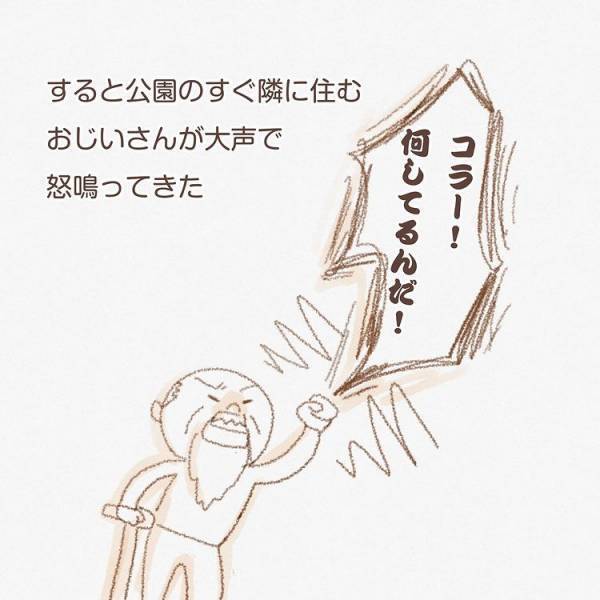 すると公園のすぐ隣に住む
おじいさんが大声で
怒鳴ってきた
コラー!
何してるんだ!